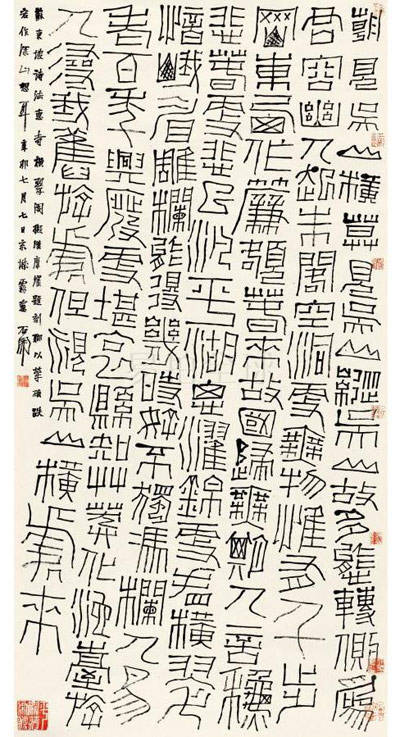 朝見吳山橫暮見吳山縱吳山故多態轉側為
君容幽人起朱閣空洞更無物惟有千步
岡東西作簾額春來故國歸無期人言秋
悲春更悲已泛平湖思濯錦更看橫翠
憶峨眉雕欄能得幾時好不獨憑欄人易
老百年興廢更堪哀懸知草莽化池臺游
人尋我舊游處但覓吳山橫處來
蘇東坡詩法惠寺橫翠閣擬漢摩崖題刻以草
宕作山想耳辛卯七月七日京石開